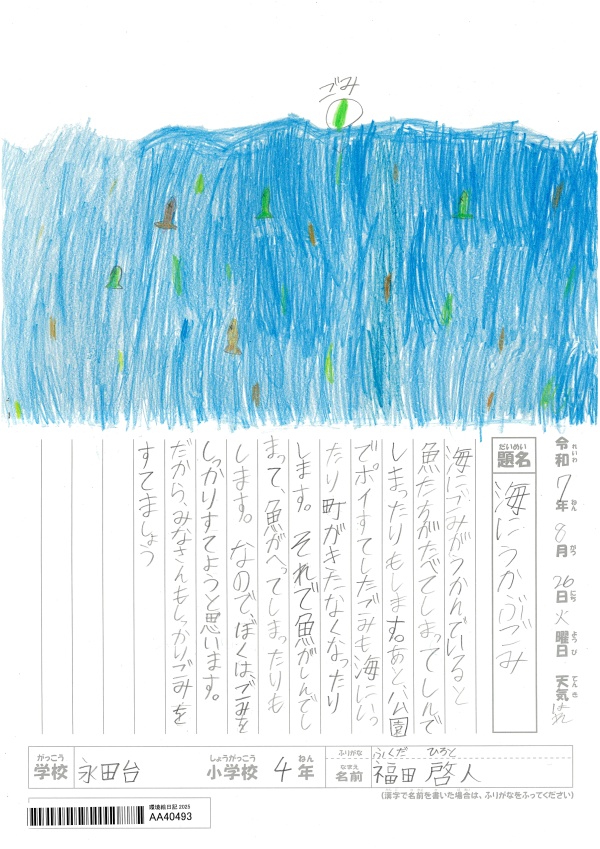 ごみ
令和7年8月26日火曜日 天気 はれ
れいわ ねん がつ にち ようび てんき
だいめい
題名
海にうかぶごみ
海にごみがうかんでいると
魚たちがたべてしまってしんで
しまったりもします。あと、公園
でポイすてしたごみも海にいっ
たり町がきたなくなったり
します。それで魚がしんでし
まって、魚がへってしまったりも
します。なので、ぼくは、ごみを
しっかりすてようと思います。
だから、みなさんもしっかりごみを
すてましょう
がっこう しょうがっこう ねん ふりがな ふくだ ひろと
学校 永田台 小学校 4年 なまえ 名前 福田 啓人
(漢字で名前を書いた場合は、ふりがなをふってください)
環境絵日記 2025
AA40493